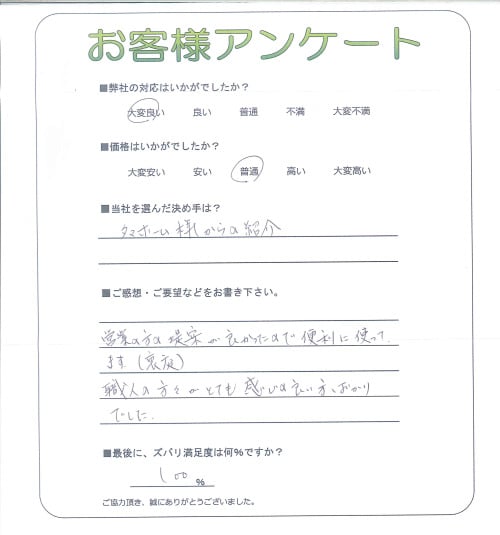 お客様アンケート
■弊社の対応はいかがでしたか？
大変良い 良い 普通 不満 大変不満
■価格はいかがでしたか？
大変安い 安い 普通 高い 大変高い
■当社を選んだ決め手は？
タマホーム様からの紹介
■ご感想・ご要望などをお書き下さい。
営業の方の提案が良かったので便利に使って
ます（裏庭）
職人の方々がとても感じの良い方ばかり
でした
■最後に、ズバリ満足度は何％ですか？
100 %
ご協力頂き、誠にありがとうございました。